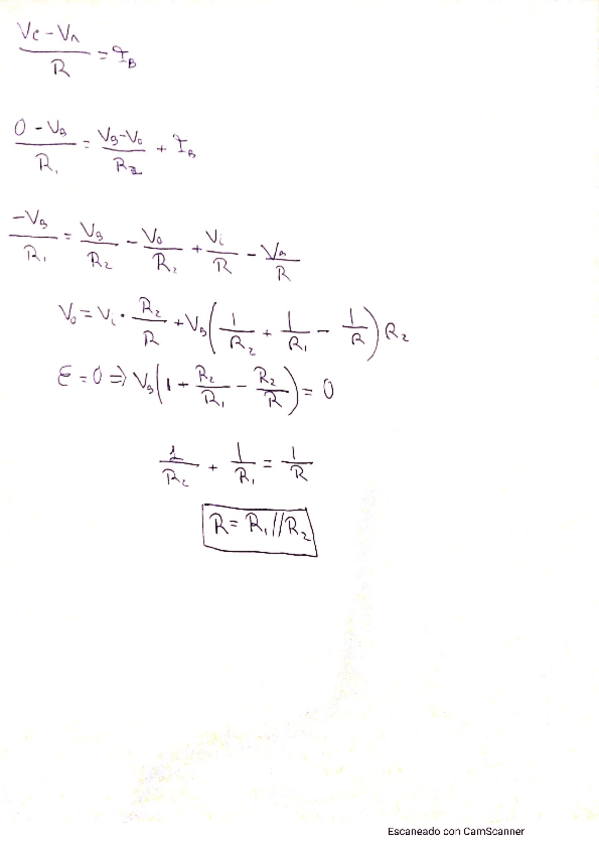 (Vi - Va)/R = I_B
(0 - V_B)/R₁ = (V_B - V₀)/R₂ + I_B
-V_B/R₁ = V_B/R₂ - V₀/R₂ + Vi/R - Va/R
V₀ = Vi · R₂/R + V_B(1/R₂ + 1/R₁ - 1/R) R₂
ε = 0 ⇒ V_B(1 + R₂/R₁ - R₂/R) = 0
1/R₂ + 1/R₁ = 1/R
R = R₁//R₂
Escaneado con CamScanner